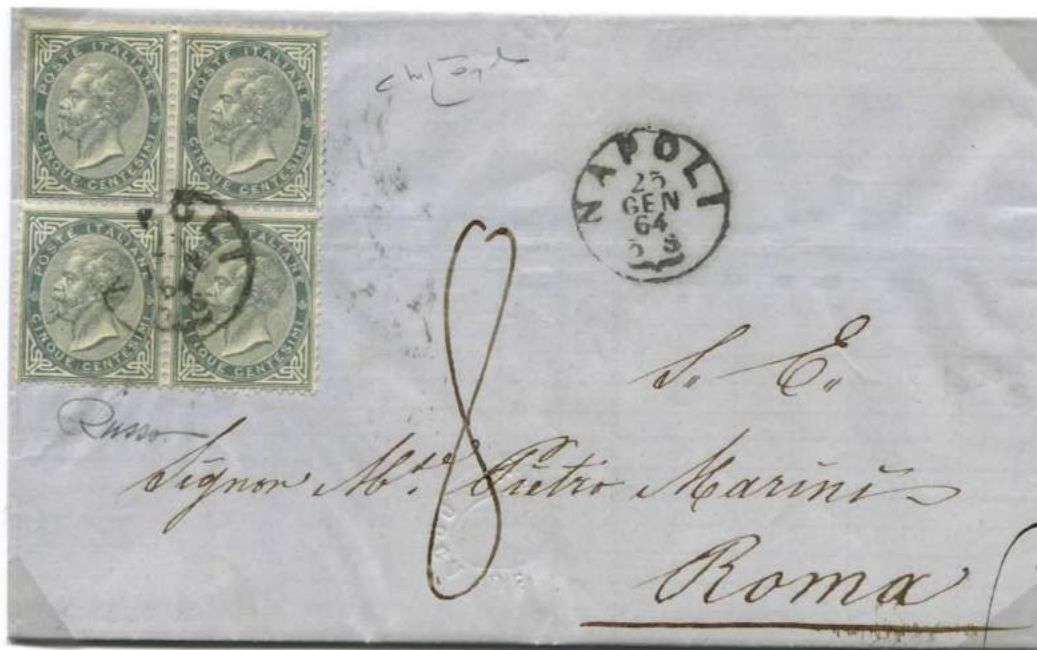 POSTE ITALIANE
CINQUE CENTESIMI
POSTE ITALIANE
CINQUE CENTESIMI
POSTE ITALIANE
CINQUE CENTESIMI
POSTE ITALIANE
CINQUE CENTESIMI
OLI
NAPOLI
25
GEN
64
5 S
8
S. E.
Russo
Signor M.se Pietro Marini
Roma